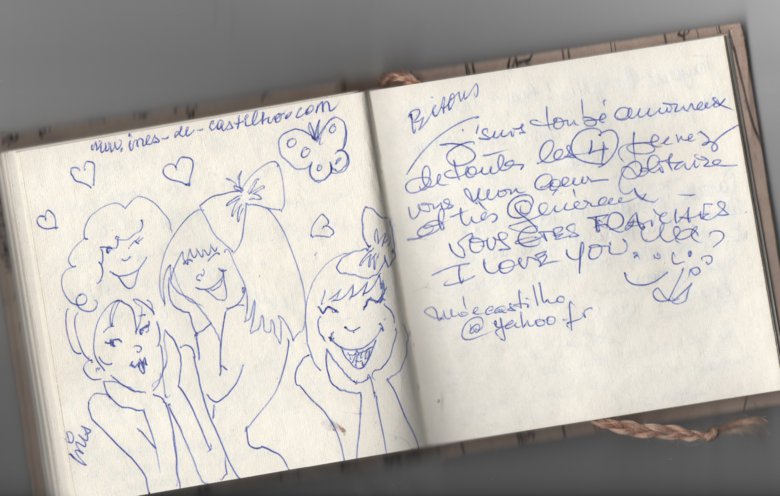 www.ines-de-castilho.com
ines
Bisous
J'suis tombé amoureux
de toutes les 4 prenez
vous mon cœur solitaire
et très généreux
VOUS ETES FRAICHES
I LOVE YOU
@yahoo.fr